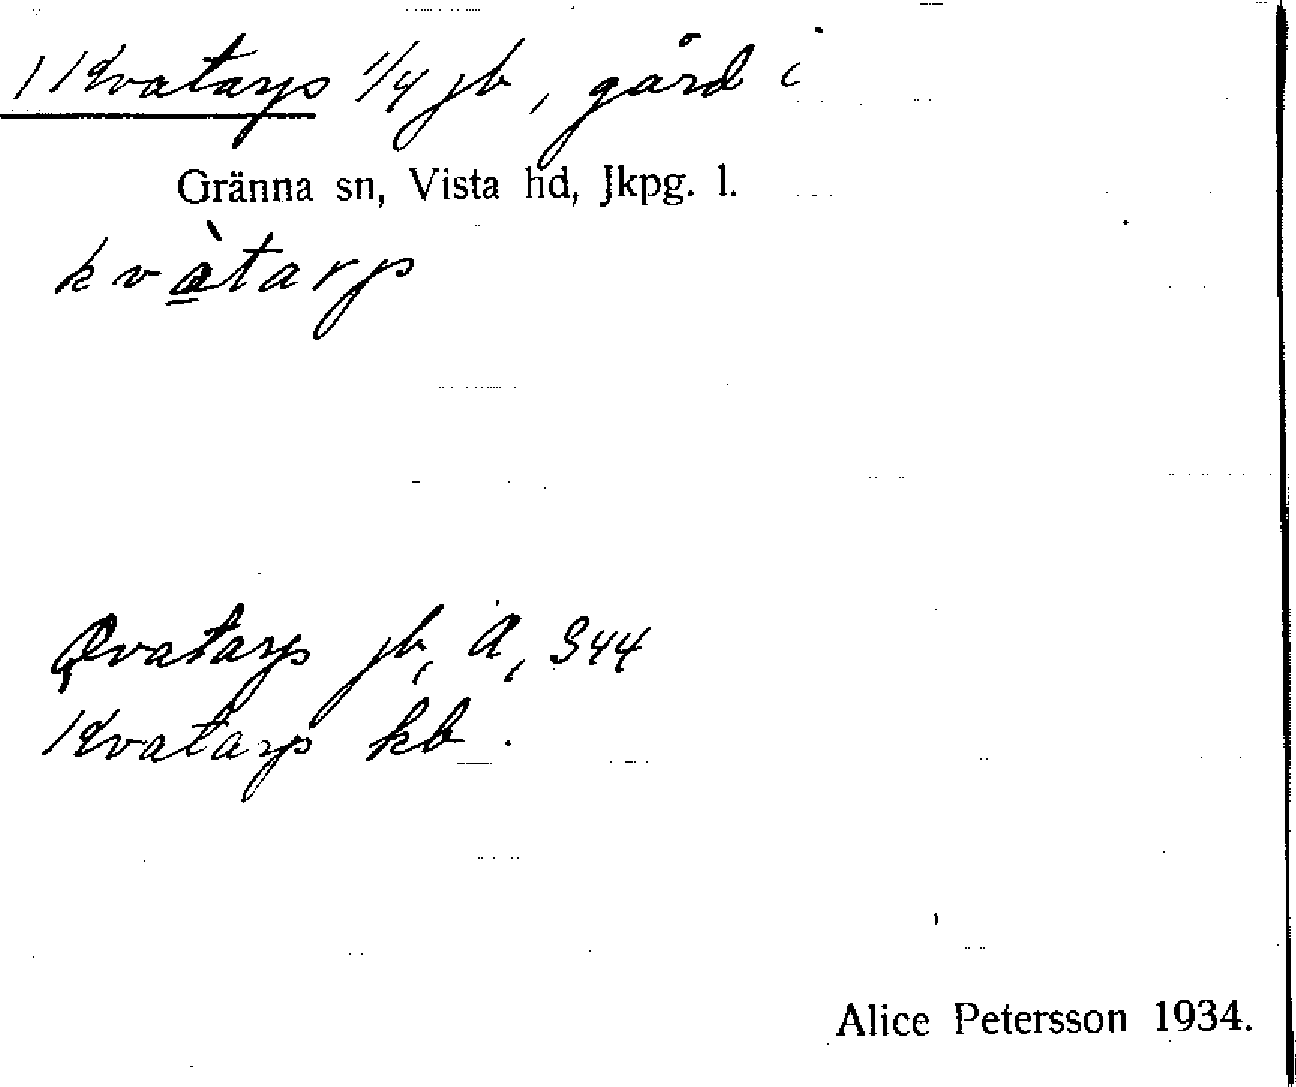 1 Kvatarp 1/4 jb, gård i
Gränna sn, Vista hd, Jkpg. l.
kvàtarp
Qvatarp jb, A, 344
Kvatarp kb.
Alice Petersson 1934.